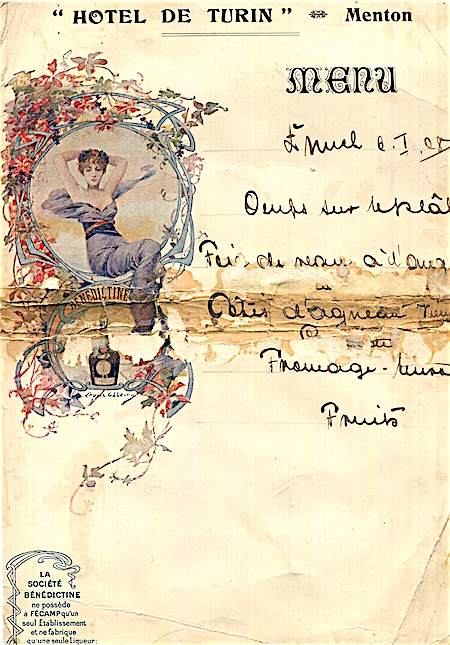 “ HOTEL DE TURIN ” Menton
MENU
Oeufs sur le plâ
Foie de veau à l'ang
ou
Côtes d'agneau
Fromage -
Fruits
BÉNÉDICTINE
LA
SOCIÉTÉ
BÉNÉDICTINE
ne possède
à FÉCAMP qu'un
seul Etablissement
et ne fabrique
qu'une seule Liqueur: